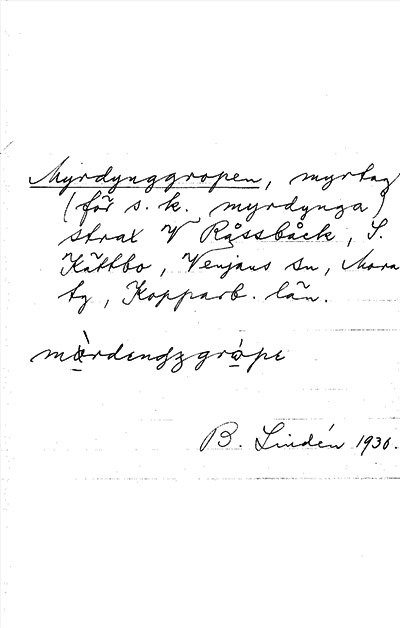 Myrdynggropen, myrtag
(för s. k. myrdynga)
strax V Råssbäck, S.
Kättbo, Venjans sn, Mora
tg, Kopparb. län.
B. Lindén 1936.